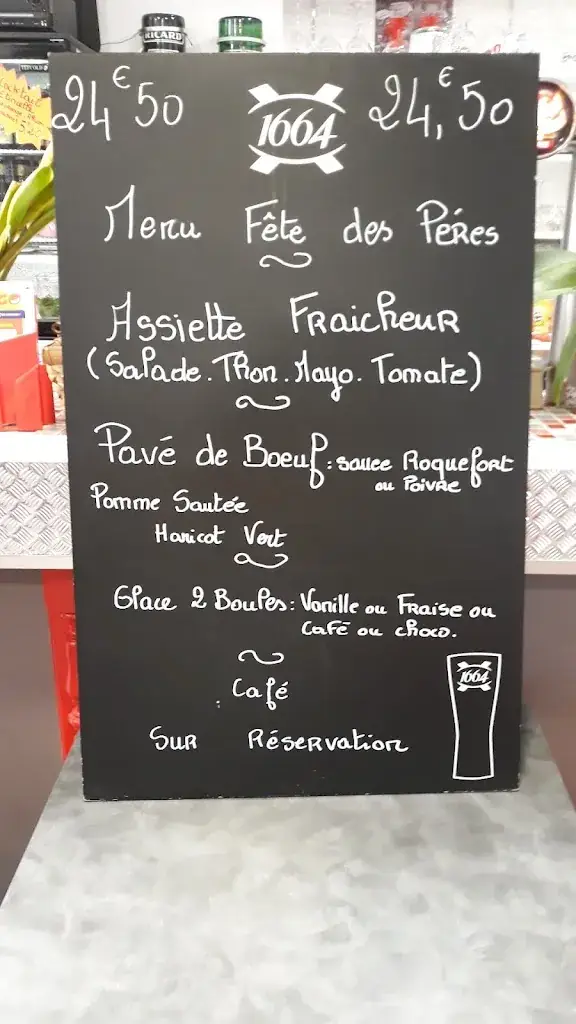 RICARD
24€50
1664
24,€50
Menu Fête des Péres
Assiette Fraicheur
(Salade. Thon. Mayo. Tomate)
Pavé de Boeuf: sauce Roquefort
ou Poivre
Pomme Sautée
Haricot Vert
Glace 2 Boules: Vanille ou Fraise ou
Café ou choco.
Café
Sur Réservation
1664